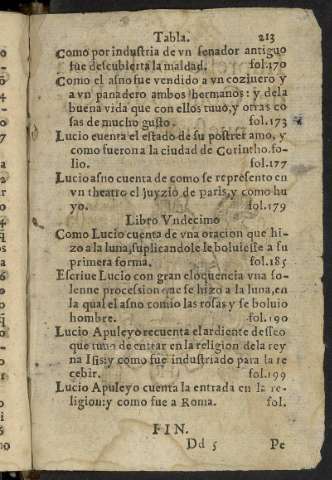 Tabla. 213
Como por industria de vn senador antiguo
fue descubierta la maldad. fol.170
Como el asno fue vendido a vn cozinero y
a vn panadero ambos hermanos: y dela
buena vida que con ellos tuuo, y otras co
sas de mucho gusto. fol.173
Lucio cuenta el estado de su postrer amo, y
como fueron a la ciudad de Corintho. fo-
lio. fol.177
Lucio asno cuenta de como se represento en
vn theatro el juyzio de paris, y como hu
yo. fol.179
Libro Vndecimo
Como Lucio cuenta de vna oracion que hi-
zo a la luna, suplicandole le boluiesse a su
primera forma. fol.185
Escriue Lucio con gran eloquencia vna so-
lenne procession que se hizo a la luna, en
la qual el asno comio las rosas y se boluio
hombre. fol.190
Lucio Apuleyo recuenta el ardiente desseo
que tuuo de entrar en la religion dela rey
na Isis: y como fue industriado para la re
cebir. fol.199
Lucio Apuleyo cuenta la entrada en la re-
ligion: y como fue a Roma. fol.
FIN.
Dd 5 Pe